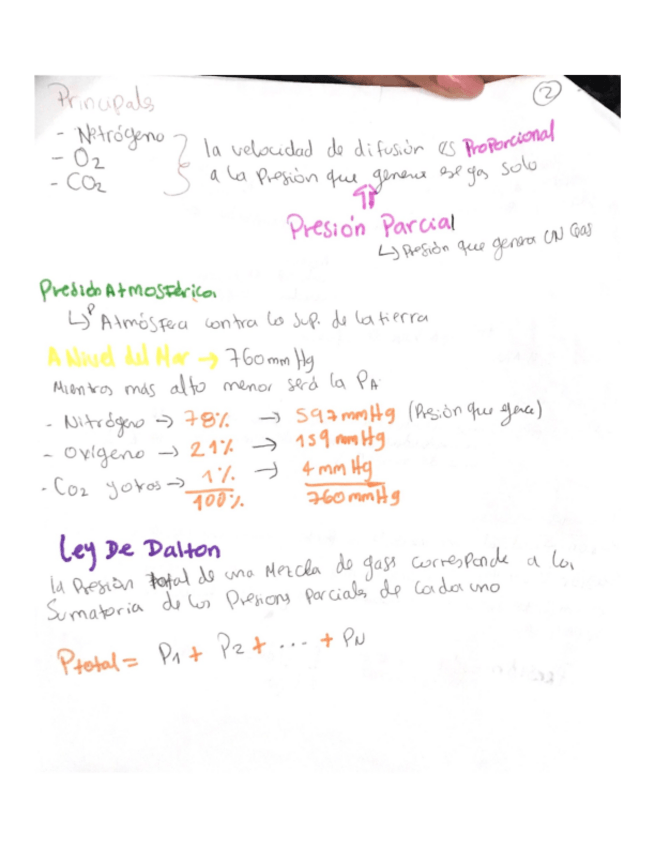 Principales
2
- Nitrógeno
- O2
- CO2
la velocidad de difusión es Proporcional
a la Presión que genera ese gas solo
Presión Parcial
↳ Presión que genera UN Gas
Presión Atmosférica
↳ P Atmósfera contra la Sup. de la tierra
A Nivel del Mar → 760 mm Hg
Mientras más alto menor será la PA
- Nitrógeno → 78% → 597 mmHg (Presión que genera)
- Oxígeno → 21% → 159 mmHg
- CO2 y otros → 1% → 4 mm Hg
100% 760 mmHg
Ley De Dalton
la Presión total de una Mezcla de gass corresponde a la
Sumatoria de las Presions parciales de cada uno
Ptotal = P1 + P2 + ... + PN